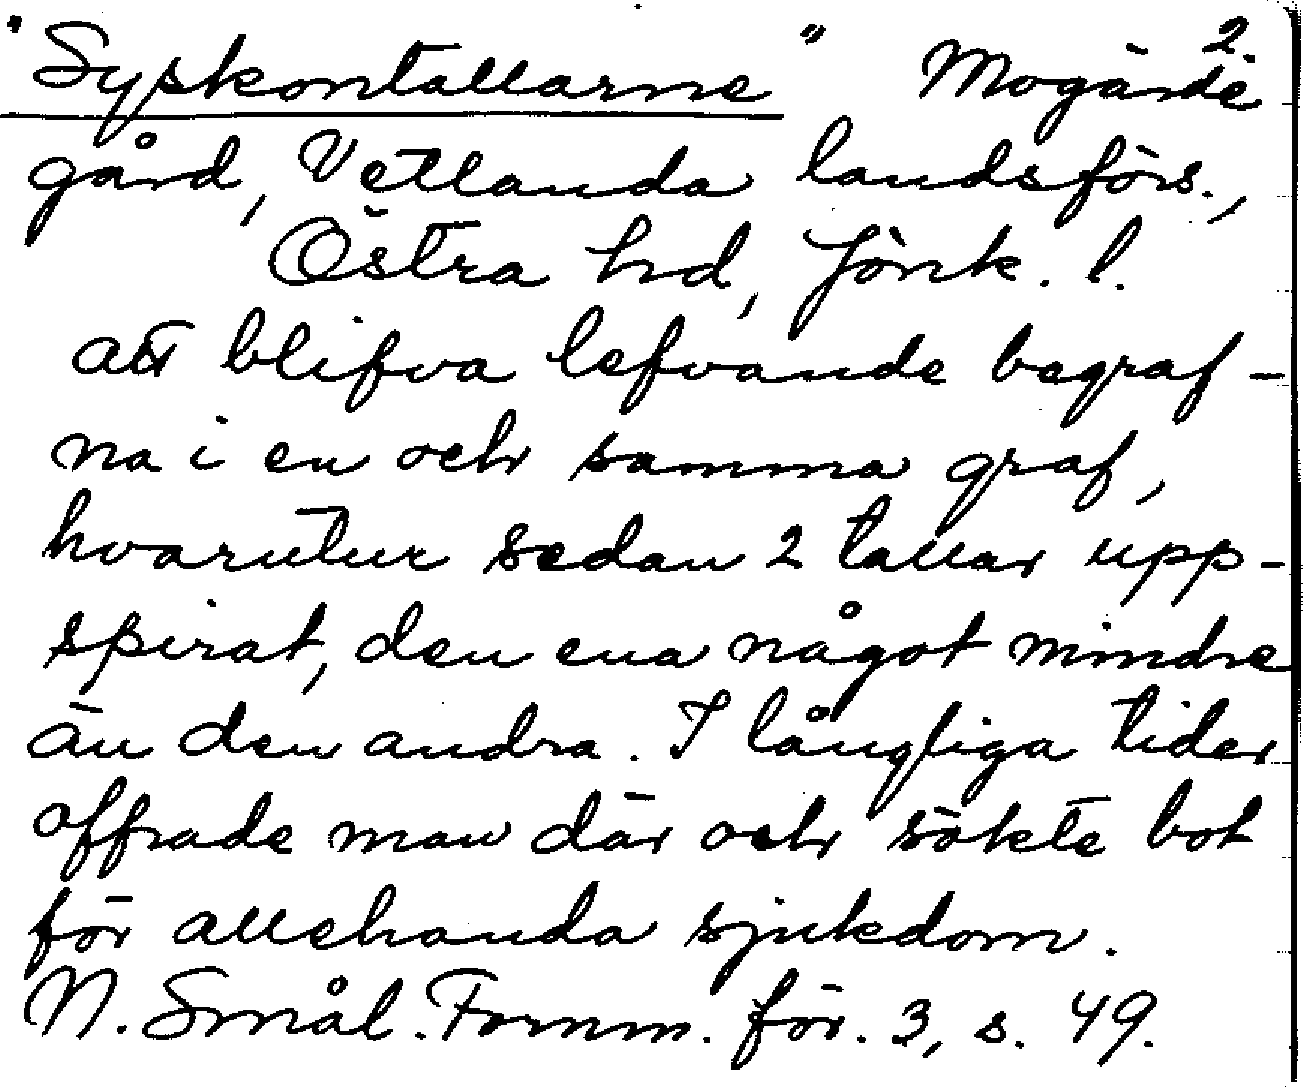 "Syskontallarne" Mogärde 2.
gård, Vetlanda landsförs.,
Östra hd, Jönk. l.
att blifva lefvande begraf-
na i en och samma graf,
hvarutur sedan 2 tallar upp-
spirat, den ena något mindre
än den andra. I långliga tider
offrade man där och sökte bot
för allehanda sjukdom.
N. Smål. Fornm. för. 3, s. 49.